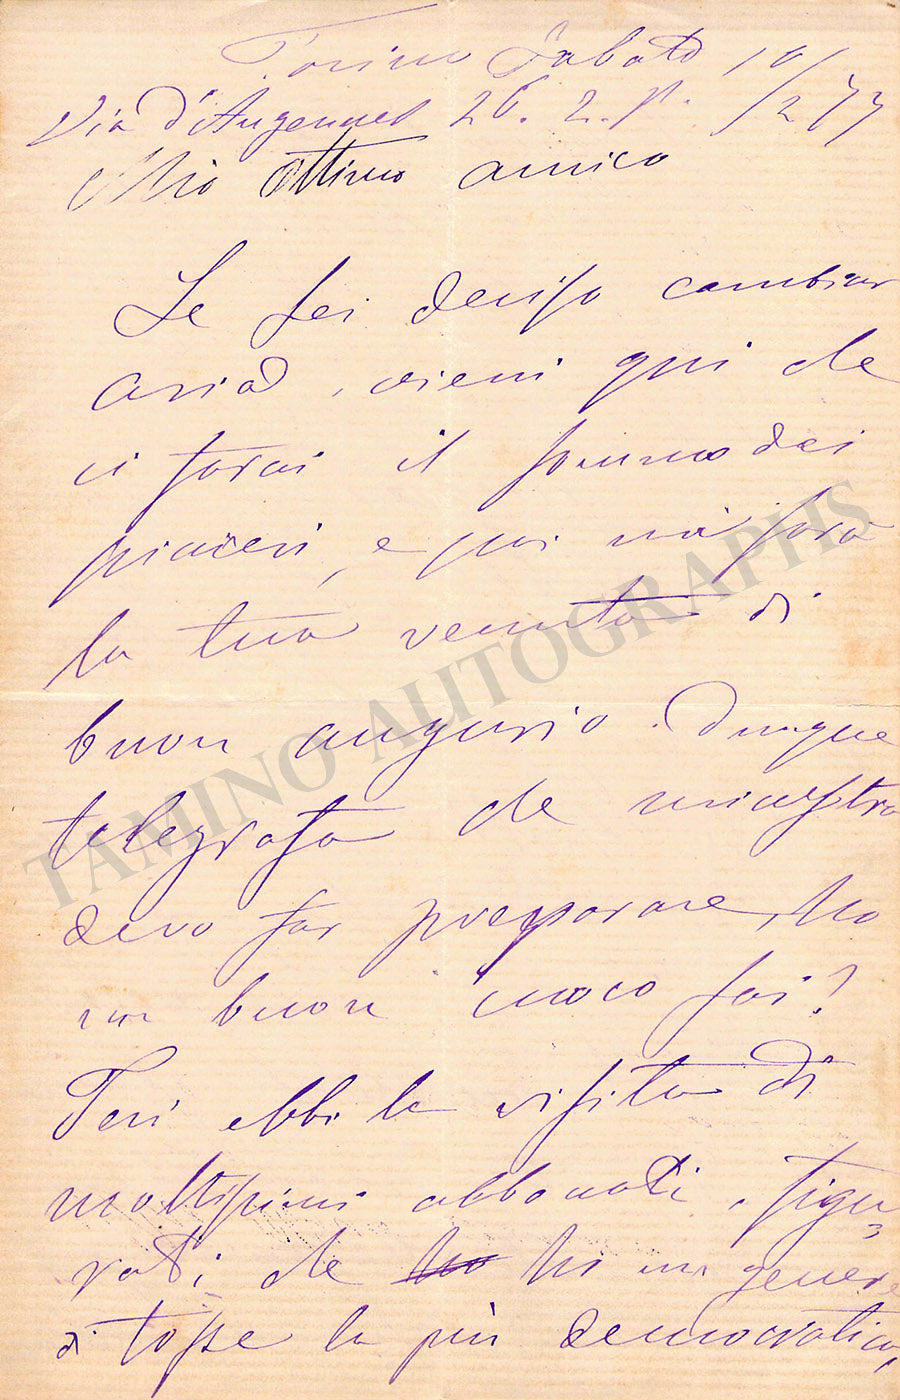 Torino Sabato 10/2 77
Via d'Angennes 26. 2. p.
Mio ottimo amico
Se sei deciso cambiar
aria, vieni qui che
ci farai il sommo dei
piaceri, e poi mi sarà
la tua venuta di
buon augurio. Dunque
telegrafa che minestra
devo far preparare, ho
un buon cuoco sai?
Ieri ebbi la visita di
moltissimi abbonati, figu-
rati, che ho ho un genere
di tosse la più democratica,
TAMINO AUTOGRAPHS